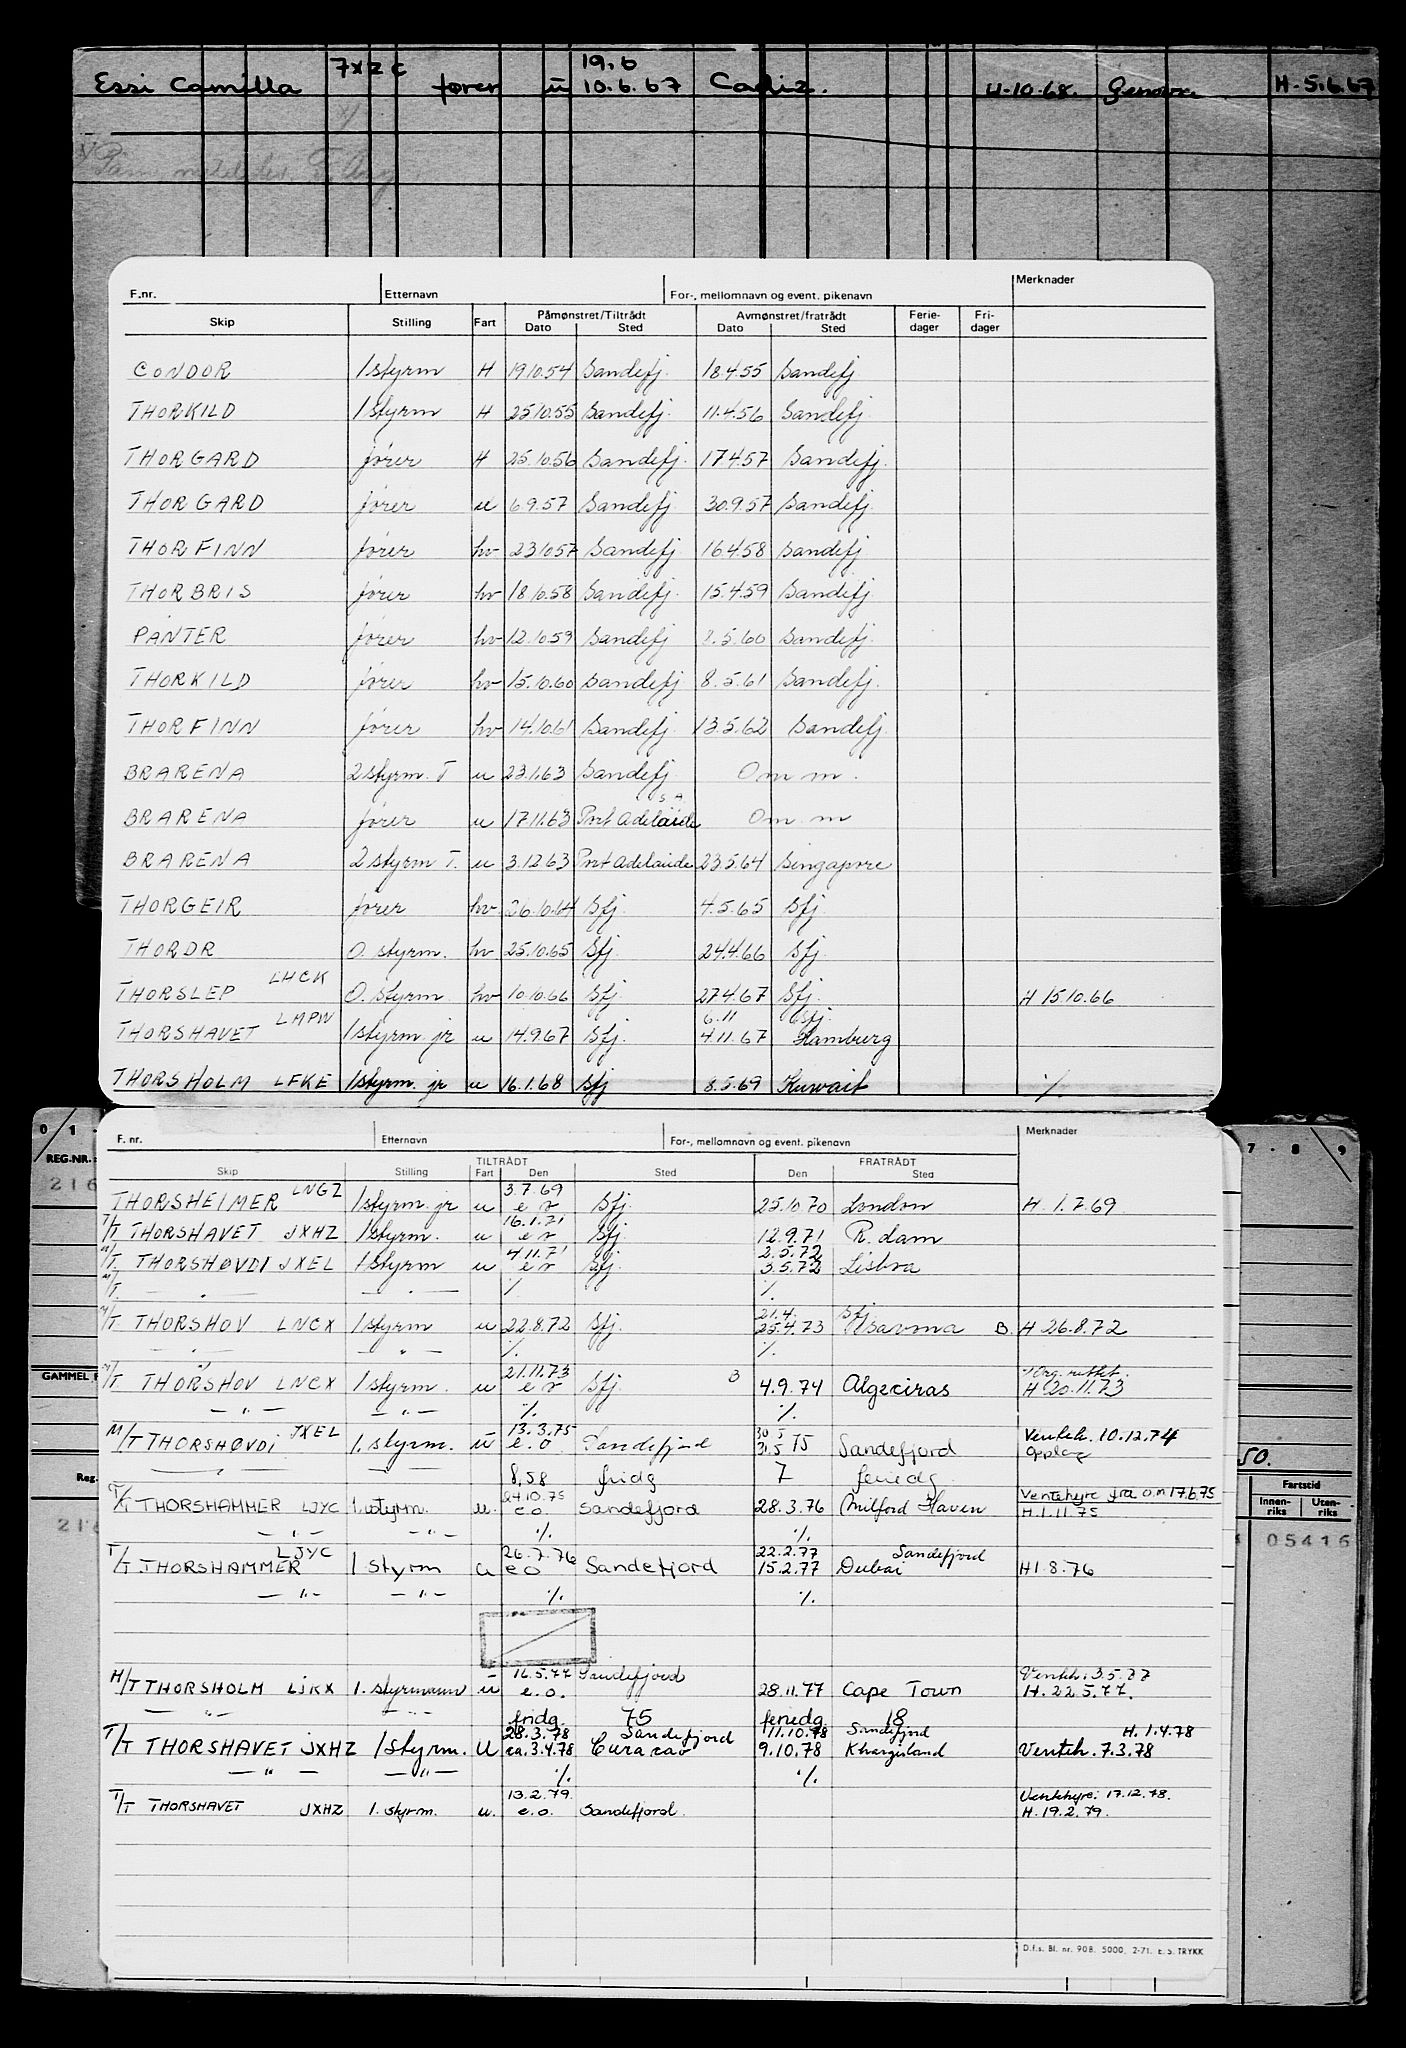 7XZC 19.6
Essi Camilla fører u 10.6.67 Cadiz. 4.10.68. Genova H-5.6.67
F.nr. Etternavn For-, mellomnavn og event. pikenavn Merknader
Skip Stilling Fart Påmønstret/Tiltrådt Avmønstret/fratrådt Ferie- Fri-
Dato Sted Dato Sted dager dager
CONDOR 1 styrm H 19.10.54 Sandefj. 18.4.55 Sandefj.
THORKILD 1 styrm H 25.10.55 Sandefj. 11.4.56 Sandefj.
THORGARD fører H 25.10.56 Sandefj. 17.4.57 Sandefj.
THORGARD fører u 6.9.57 Sandefj. 30.9.57 Sandefj.
THORFINN fører hv 23.10.57 Sandefj. 16.4.58 Sandefj
THORBRIS fører hv 18.10.58 Sandefj. 15.4.59 Sandefj.
PANTER fører hv 12.10.59 Sandefj. 8.5.60 Sandefj.
THORKILD fører hv 15.10.60 Sandefj 8.5.61 Sandefj.
THORFINN fører hv 14.10.61 Sandefj. 13.5.62 Sandefj.
BRARENA 2 styrm. T u 23.1.63 Sandefj. Om m.
BRARENA fører u 17.11.63 Port Adelaide Om m
BRARENA 2 styrm T. u 3.12.63 Port Adelaide 23.5.64 Singapore
THORGEIR fører hv. 26.10.64 Sfj. 4.5.65 Sfj.
THORDR O. styrm. hv 25.10.65 Sfj. 24.4.66 Sfj.
THORSLEP LHCK O. styrm. hv 10.10.66 Sfj. 27.4.67 Sfj. H 15.10.66
6.11 Sfj.
THORSHAVET LMPW 1 styrm. jr u 14.9.67 Sfj. 4.11.67 Hamburg
THORSHOLM LFKE 1 styrm. jr u 16.1.68 Sfj 8.5.69 Kuwait %
F. nr. Etternavn For-, mellomnavn og event. pikenavn Merknader
TILTRÅDT FRATRÅDT
Skip Stilling Fart Den Sted Den Sted
3.7.69
THORSHEIMER LNGZ 1 styrm jr u e o Sfj. 25.10.70 London H. 1.7.69
16.1.71
T/T THORSHAVET JXHZ 1 styrm. u e o Sfj. 12.9.71 R.dam
4.11.71 2.5.72
M/T. THORSHØVDI JXEL 1 styrm u e o Sfj. 3.5.72 Lisboa
M/T. — " — — " — % %
21.4. Sfj
M/T THORSHOV LNCX 1 styrm u 22.8.72 Sfj. 25.4.73 B. H 26.8.72
— " — — " — % %
21.11.73
M/T THORSHOV LNCX 1 styrm. u e o Sfj. B 4.9.74 Algeciras H 20.11.73
— " — — " — % %
13.3.75 30.5
M/T THORSHØVDI JXEL 1. styrm. u e.o. Sandefjord 31.5 75 Sandefjord Venteh. 10.12.74 Opplag
— " — — " — 8,58 fridg 7 feriedg.
24.10.75 Ventehyre fra o.m 17.6.75
T/T THORSHAMMER LJYC 1. styrm. u. e.o. Sandefjord 28.3.76 Milford Haven H.1.11.75
— " — — " — % %
26.7.76 22.2.77 Sandefjord
T/T THORSHAMMER LJYC 1 styrm u eo Sandefjord 15.2.77 Dubai H1.8.76
— " — — " — % %
16.5.77 Sandefjord Venteh. 3.5.77
M/T THORSHOLM LJKX 1. styrmann u e.o. 28.11.77 Cape Town H. 22.5.77.
— " — — " — fridg. 75 feriedg 18
28.3.78 Sandefjord 11.10.78 Sandefjord H. 1.4.78
T/T THORSHAVET JXHZ 1 styrm. u ca. 3.4.78 Curacao 9.10.78 Khargisland Venteh. 7.3.78
— " — — " — % %
13.2.79. Ventehyre: 17.12.78.
T/T THORSHAVET JXHZ 1. styrm. u. e.o. Sandefjord. H. 19.2.79.
D.f.s. Bl. nr. 908. 5000. 2-71. E. S. TRYKK
0 1 -
REG.NR.:
216
GAMMEL
Reg.
216
7 - 8 - 9
50.
Fartstid
Innen-riks Uten-riks
05416